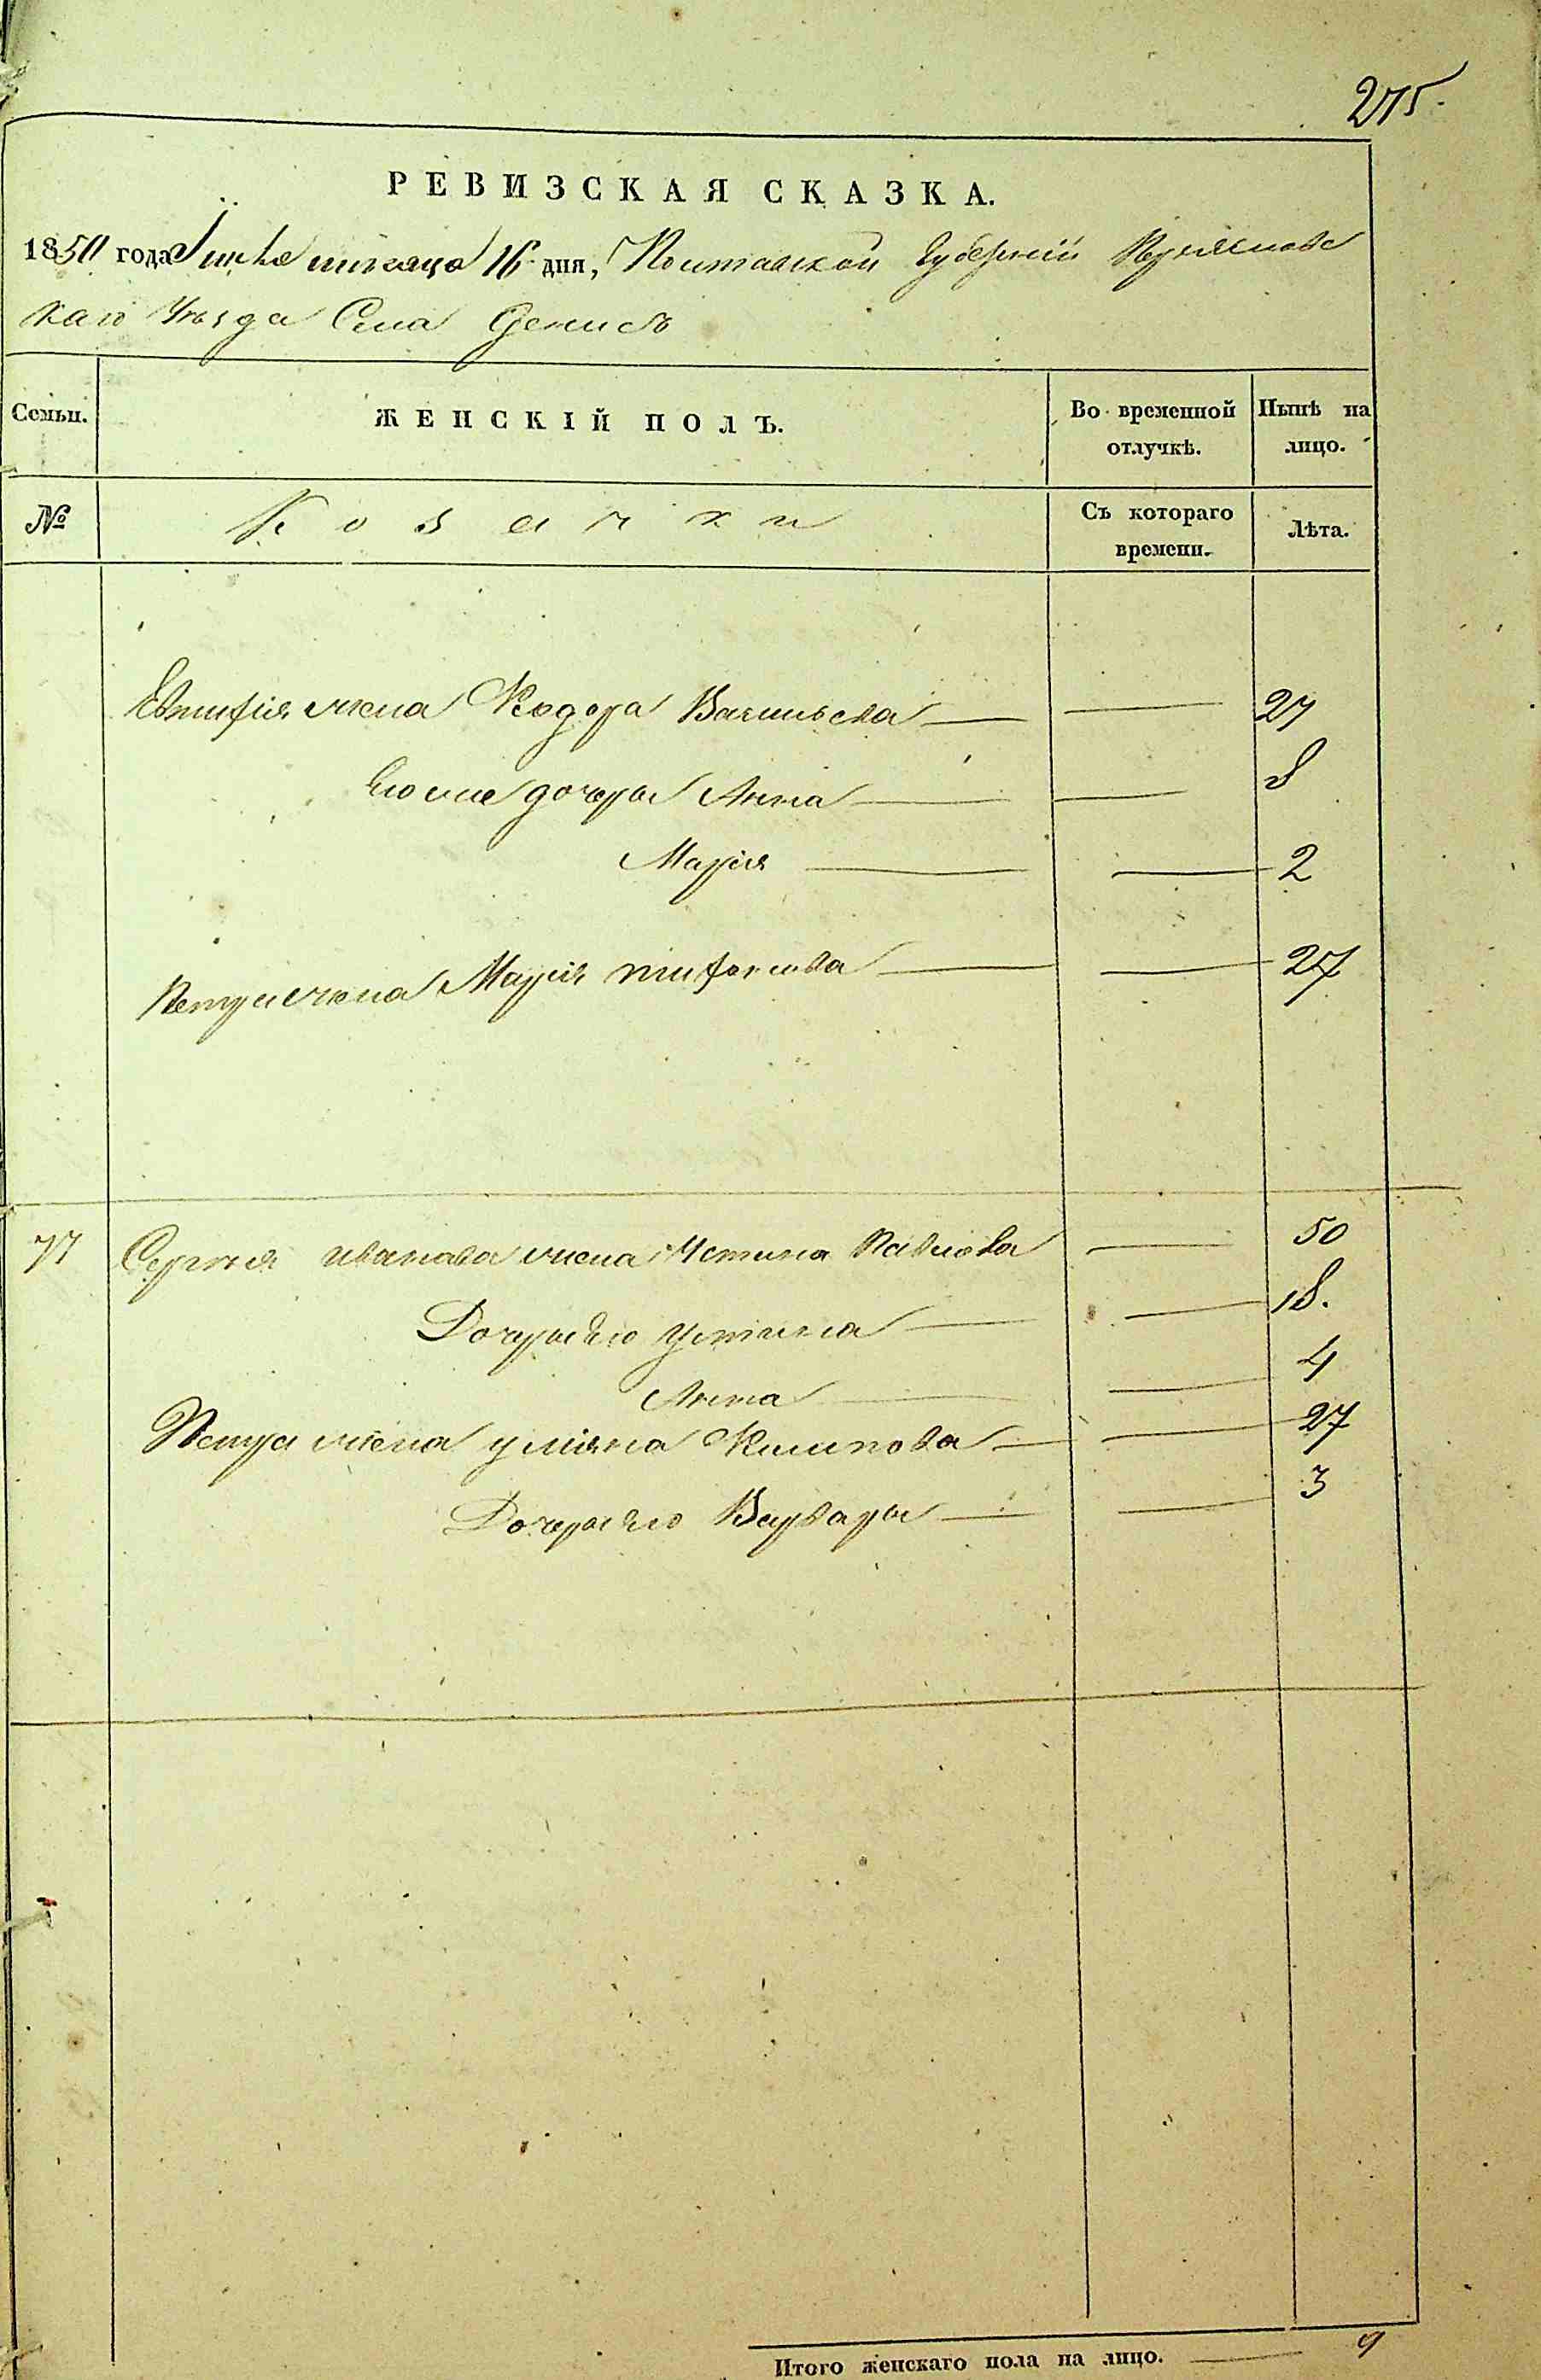 275.
РЕВИЗСКАЯ СКАЗКА.
1850 года Іюля мѣсяца 16 дня, Полтавской Губерніи Переяславс
каго Уѣзда Села Денисъ
Семьи. ЖЕНСКІЙ ПОЛЪ. Во временной отлучкѣ. Нынѣ на лицо.
№ Козачки Съ котораго времени. Лѣта.
жена Федора Васильева — — 27
Его же дочери Анна — — 8
Марія — — 2
Петра жена Марія — — 27
77 Сергея Иванова жена Устина Павлова — 50
Дочери его Устина — — 18.
Анна — — 4
Петра жена улияна Филипова — — 27
Дочери его Варвара — — 3
Итого женскаго пола на лицо. — 9